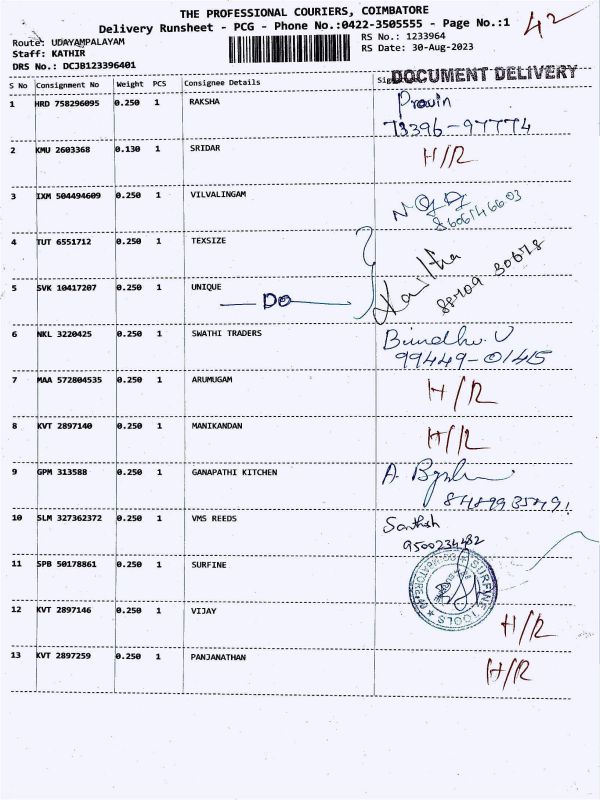 THE PROFESSIONAL COURIERS, COIMBATORE
Delivery Runsheet - PCG - Phone No.:0422-3505555 - Page No.:1
42
Route: UDAYAMPALAYAM
RS No.: 1233964
Staff: KATHIR
RS Date: 30-Aug-2023
DRS No.: DCJB123396401
DOCUMENT DELIVERY
S No Consignment No Weight PCS Consignee Details
1 HRD 758296095 0.250 1 RAKSHA Pravin
73396-97774
2 KMU 2603368 0.130 1 SRIDAR H/R
3 IXM 504494609 0.250 1 VILVALINGAM
4 TUT 6551712 0.250 1 TEXSIZE
5 SVK 10417207 0.250 1 UNIQUE
Do
88709 30678
6 NKL 3220425 0.250 1 SWATHI TRADERS Bindhu. U
99449-01415
7 MAA 572804535 0.250 1 ARUMUGAM H/R
8 KVT 2897140 0.250 1 MANIKANDAN H/R
9 GPM 313588 0.250 1 GANAPATHI KITCHEN A.
8489935491
10 SLM 327362372 0.250 1 VMS REEDS Santhsh
9500234482
11 SPB 50178861 0.250 1 SURFINE
SURFINE TOOLS
12 KVT 2897146 0.250 1 VIJAY H/R
13 KVT 2897259 0.250 1 PANJANATHAN H/R